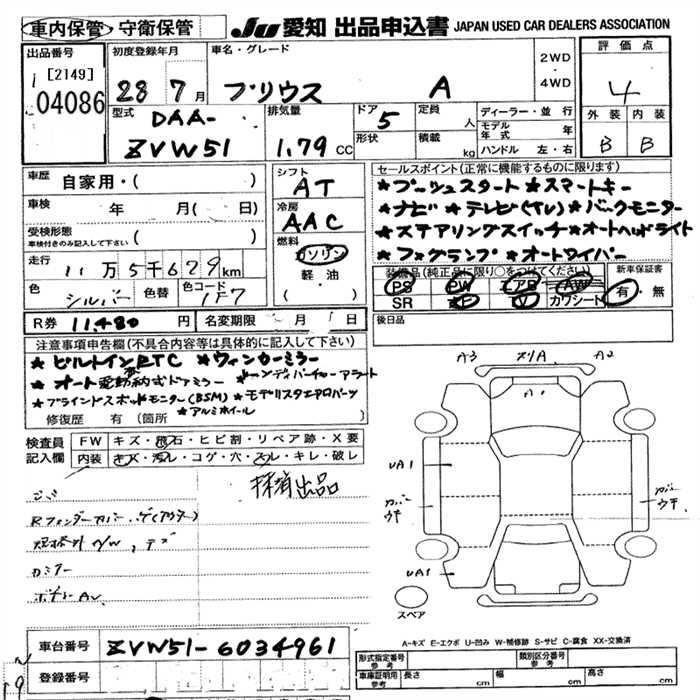 車内保管・守衛保管
JU 愛知 出品申込書 JAPAN USED CAR DEALERS ASSOCIATION
出品番号 [2149] 04086
初度登録年月 28年 7月
車名・グレード プリウス A
2WD・4WD
評価点 4
外装 B 内装 B
型式 DAA-ZVW51
排気量 1.79 CC
ドア 5
形状
定員 人
積載 kg
ディーラー・並行
モデル年式 年
ハンドル 左・右
車歴 自家用・( )
車検 年 月( 日)
受検形態 車検付きのみ記入して下さい ( )
走行 11万5千679km
色 シルバー 色替 色コード 1F7
シフト AT
冷房 AAC
燃料 ガソリン 軽・油 ( )
セールスポイント(正常に機能するものに限ります)
★プッシュスタート ★スマートキー
★ナビ ★テレビ(TV) ★バックモニター
★ステアリングスイッチ ★オートヘッドライト
★フォグランプ ★オートワイパー
装備品(純正品に限り○をつけてください)
PS PW エアB AW
SR TV カワシート
新車保証書 有・無
R券 11,480円 名変期限 月 日
後日品
注意事項申告欄(不具合内容等は具体的に記入して下さい)
★ビルトインETC ★ウィンカーミラー
★オート電動格納式ドアミラー ★レーンディパーチャーアラート
★ブラインドスポットモニター(BSM) ★モデリスタエアロパーツ
★アルミホイール
修復歴 有 (箇所
検査員記入欄
FW キズ・飛石・ヒビ割・リペア跡・X要
内装 キズ・汚れ・コゲ・穴・スレ・キレ・破レ
抹消出品
A3 メリA A2
A1
UA1
カバーウキ
カバーウキ
UA1
スペア
A-キズ E-エクボ U-凹み W-補修跡 S-サビ C-腐食 XX-交換済
車台番号 ZVW51-6034961
登録番号
形式指定番号 参考
類別区分番号 参考
車庫証明用 参考 長さ cm 幅 cm 高さ cm